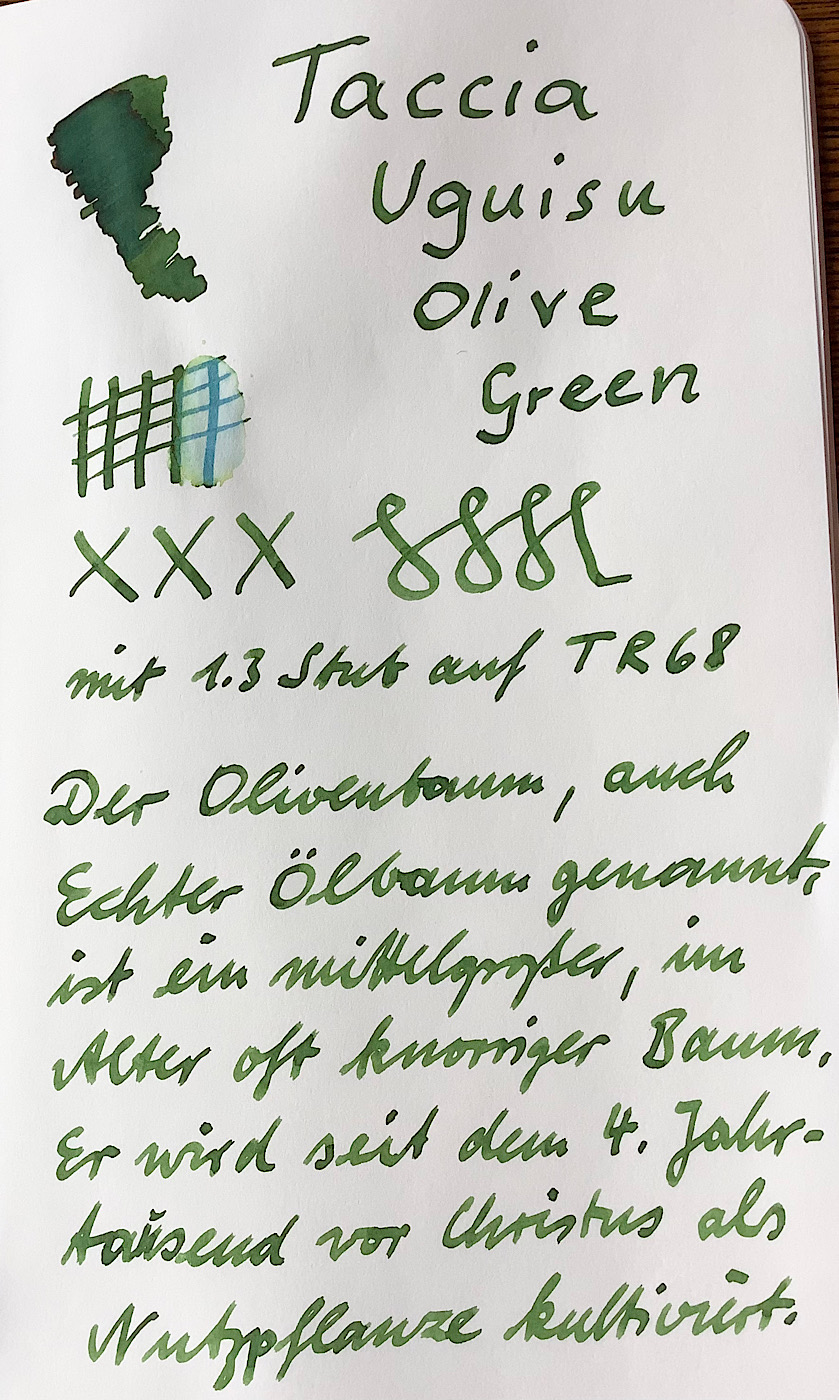 Taccia
Uguisu
Olive
Green
XXX
mit 1.3 Stub auf TR68
Der Olivenbaum, auch
Echter Ölbaum genannt,
ist ein mittelgroßer, im
Alter oft knorriger Baum.
Er wird seit dem 4. Jahr-
tausend vor Christus als
Nutzpflanze kultiviert.